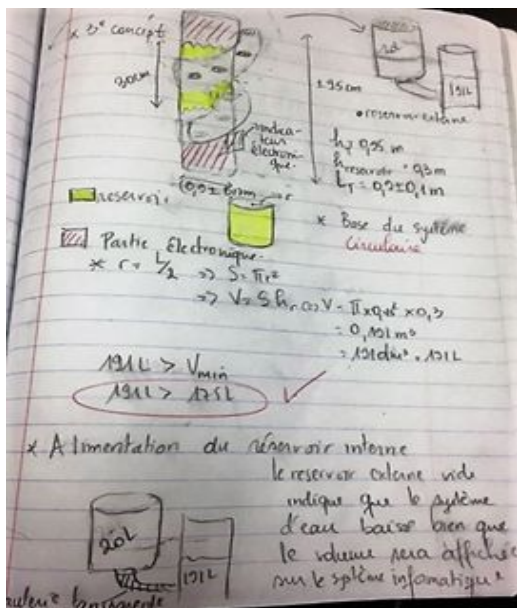 * 3e concept
30cm
195cm
20L
191L
• reservoir externe
indica-
teur
électroni-
que.
h reservoir = 0,3 m
LT = 0,9±0,1m
reservoir
* Base du système
circulaire
Partie Electronique.
* r = L/2 => S = πr²
=> V = S hr
= 0,191 m³
= 191dm³ = 191L
191L > Vmin
191L > 175L
* Alimentation du réservoir interne
le reservoir externe vide
indique que le système
d'eau baisse bien que
le volume sera affiché
sur le système informatique
20L
191L